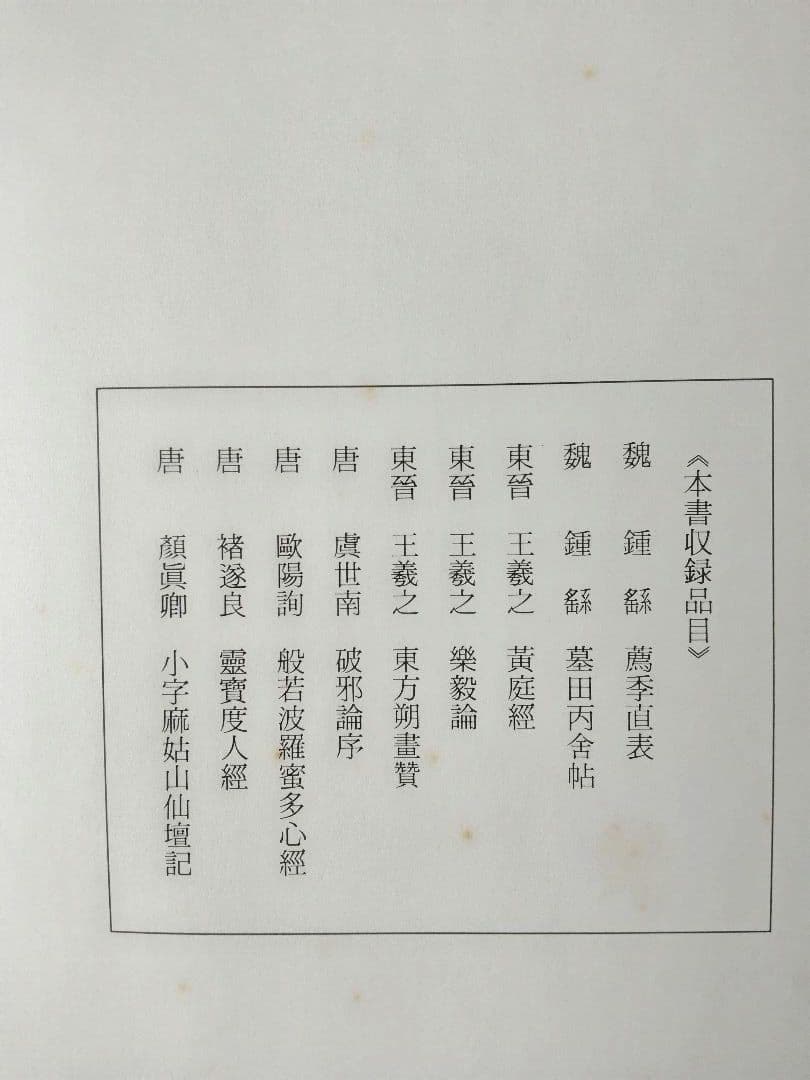 《本書収録品目》
魏 鍾繇 薦季直表
魏 鍾繇 墓田丙舍帖
東晉 王羲之 黃庭經
東晉 王羲之 樂毅論
東晉 王羲之 東方朔畫贊
唐 虞世南 破邪論序
唐 歐陽詢 般若波羅蜜多心經
唐 褚遂良 靈寶度人經
唐 顏眞卿 小字麻姑山仙壇記